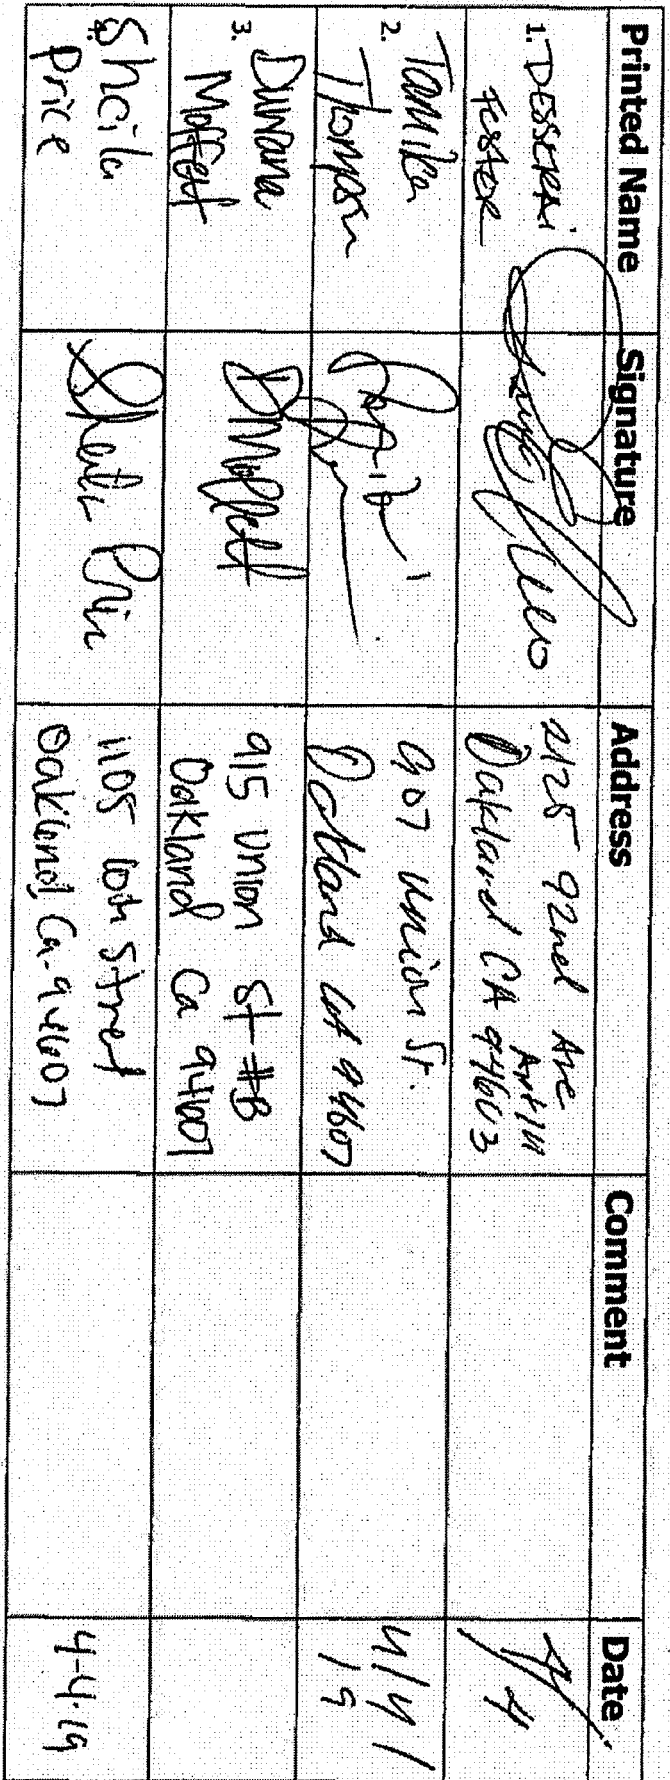 Printed Name Signature Address Comment Date
1. DESSERAI
FOSTER
2125 92nd Ave
Oakland CA 94603
4/4
2. Tamika
Thompson
907 Union St.
Oakland Ca 94607
4/4/
19
3. Duvana
Moffett
D Moffett
915 Union St #B
Oakland Ca 94607
4. Sheila
Price
Sheila Price
1105 10th Street
Oakland Ca. 94607
4-4-19